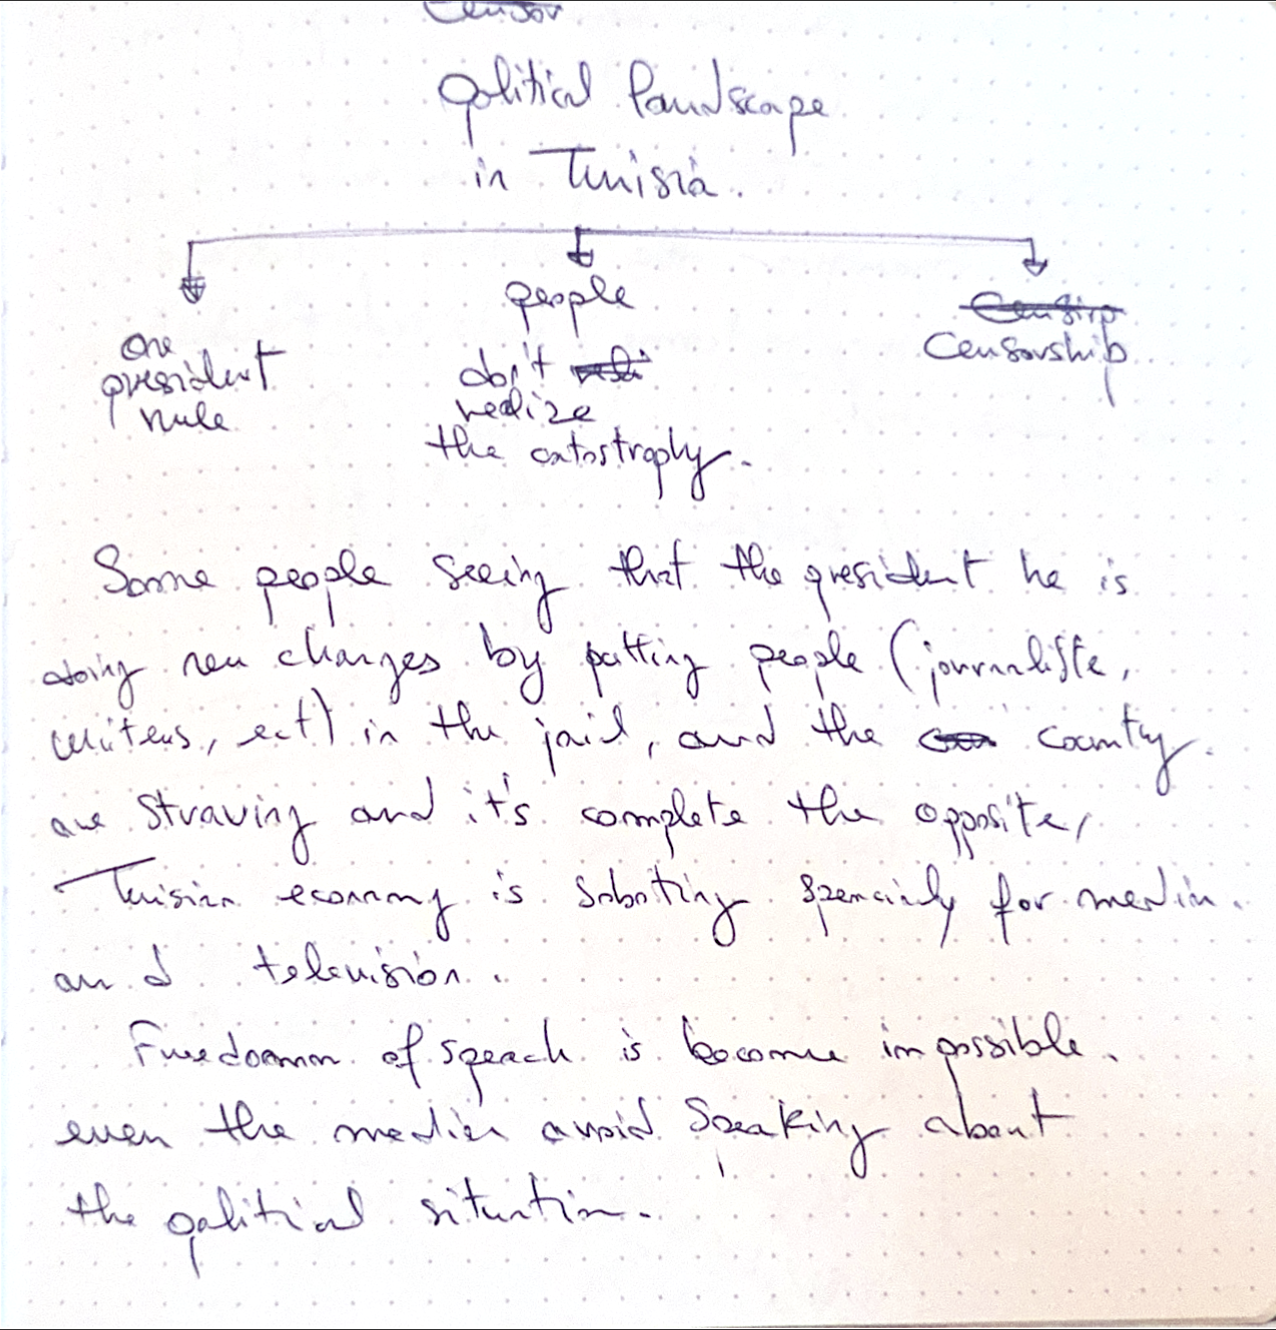 Censor
political landscape
in Tunisia.
one
president
rule
people
don't reali
realize
the catastrophy.
Censirp
Censorship
Some people seeing that the president he is
doing new changes by putting people (journaliste,
writers, ect) in the jail, and the country.
are straving and it's complete the opposite,
Tunisian economy is saboting spencialy for media.
and television.
Freedomm of speach is become impossible.
even the media avoid speaking about
the political situation.